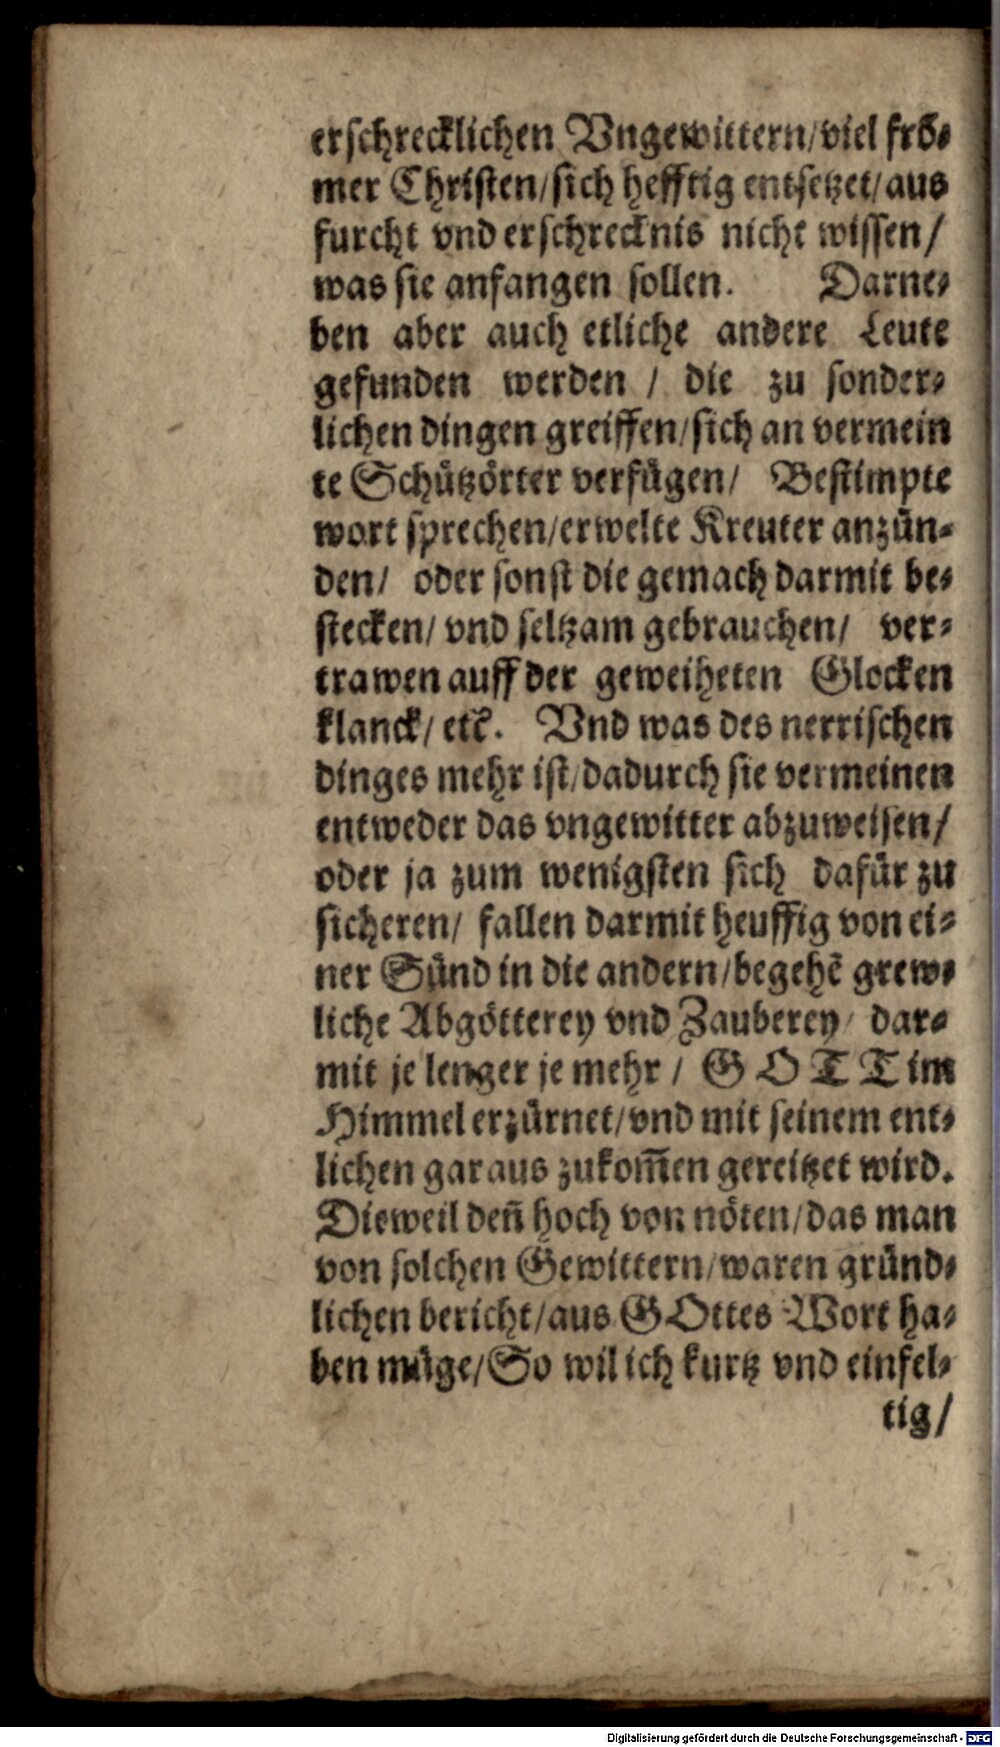 erschrecklichen Vngewittern/viel frö-
mer Christen/sich hefftig entsetzet/aus
furcht vnd erschrecknis nicht wissen/
was sie anfangen sollen. Darne-
ben aber auch etliche andere Leute
gefunden werden / die zu sonder-
lichen dingen greiffen/sich an vermein
te Schützörter verfügen/ Bestimpte
wort sprechen/erwelte Kreuter anzün-
den/ oder sonst die gemach darmit be-
stecken/ vnd seltzam gebrauchen/ ver-
trawen auff der geweiheten Glocken
klanck/ etc̃. Vnd was des nerrischen
dinges mehr ist/dadurch sie vermeinen
entweder das vngewitter abzuweisen/
oder ja zum wenigsten sich dafür zu
sicheren/ fallen darmit heuffig von ei-
ner Sünd in die andern/begehẽ grew-
liche Abgötterey vnd Zauberey/ dar-
mit je lenger je mehr / GOTT im
Himmel erzürnet/vnd mit seinem ent-
lichen garaus zukom̃en gereitzet wird.
Dieweil deñ hoch von nöten/das man
von solchen Gewittern/waren gründ-
lichen bericht/aus GOttes Wort ha-
ben müge/So wil ich kurtz vnd einfel-
tig/
Digitalisierung gefördert durch die Deutsche Forschungsgemeinschaft - DFG